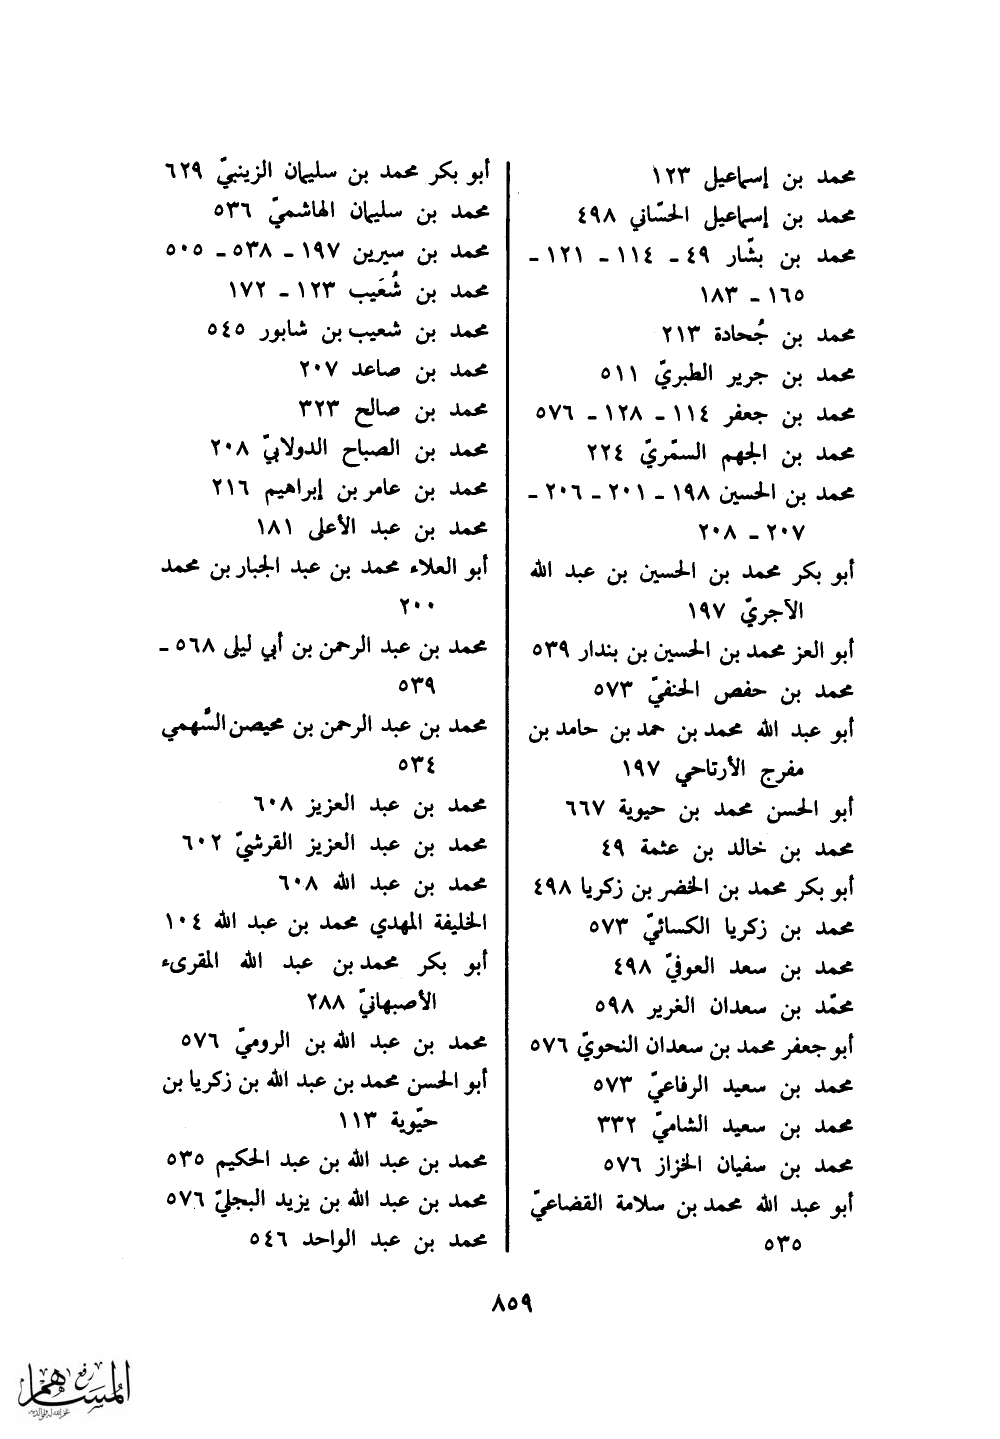 محمد بن إسماعيل ١٢٣
محمد بن إسماعيل الحسّاني ٤٩٨
محمد بن بشّار ٤٩ ـ ١١٤ ـ ١٢١ ـ
١٦٥ ـ ١٨٣
محمد بن جُحادة ٢١٣
محمد بن جرير الطبريّ ٥١١
محمد بن جعفر ١١٤ ـ ١٢٨ ـ ٥٧٦
محمد بن الجهم السمّريّ ٢٢٤
محمد بن الحسين ١٩٨ ـ ٢٠١ ـ ٢٠٦ ـ
٢٠٧ ـ ٢٠٨
أبو بكر محمد بن الحسين بن عبد الله
الآجريّ ١٩٧
أبو العز محمد بن الحسين بن بندار ٥٣٩
محمد بن حفص الحنفيّ ٥٧٣
أبو عبد الله محمد بن حمد بن حامد بن
مفرج الأرتاحي ١٩٧
أبو الحسن محمد بن حيوية ٦٦٧
محمد بن خالد بن عثمة ٤٩
أبو بكر محمد بن الخضر بن زكريا ٤٩٨
محمد بن زكريا الكسائيّ ٥٧٣
محمد بن سعد العوفيّ ٤٩٨
محمّد بن سعدان الغرير ٥٩٨
أبو جعفر محمد بن سعدان النحويّ ٥٧٦
محمد بن سعيد الرفاعيّ ٥٧٣
محمد بن سعيد الشاميّ ٣٣٢
محمد بن سفيان الخزاز ٥٧٦
أبو عبد الله محمد بن سلامة القضاعيّ
٥٣٥
أبو بكر محمد بن سليمان الزينبيّ ٦٢٩
محمد بن سليمان الهاشميّ ٥٣٦
محمد بن سيرين ١٩٧ ـ ٥٣٨ ـ ٥٠٥
محمد بن شُعَيب ١٢٣ ـ ١٧٢
محمد بن شعيب بن شابور ٥٤٥
محمد بن صاعد ٢٠٧
محمد بن صالح ٣٢٣
محمد بن الصباح الدولابيّ ٢٠٨
محمد بن عامر بن إبراهيم ٢١٦
محمد بن عبد الأعلى ١٨١
أبو العلاء محمد بن عبد الجبار بن محمد
٢٠٠
محمد بن عبد الرحمن بن أبي ليلى ٥٦٨ ـ
٥٣٩
محمد بن عبد الرحمن بن محيصن السَّهمي
٥٣٤
محمد بن عبد العزيز ٦٠٨
محمد بن عبد العزيز القرشيّ ٦٠٢
محمد بن عبد الله ٦٠٨
الخليفة المهدي محمد بن عبد الله ١٠٤
أبو بكر محمد بن عبد الله المقرىء
الأصبهانيّ ٢٨٨
محمد بن عبد الله بن الروميّ ٥٧٦
أبو الحسن محمد بن عبد الله بن زكريا بن
حيّوية ١١٣
محمد بن عبد الله بن عبد الحكيم ٥٣٥
محمد بن عبد الله بن يزيد البجليّ ٥٧٦
محمد بن عبد الواحد ٥٤٦
٨٥٩
رفع
المساهم